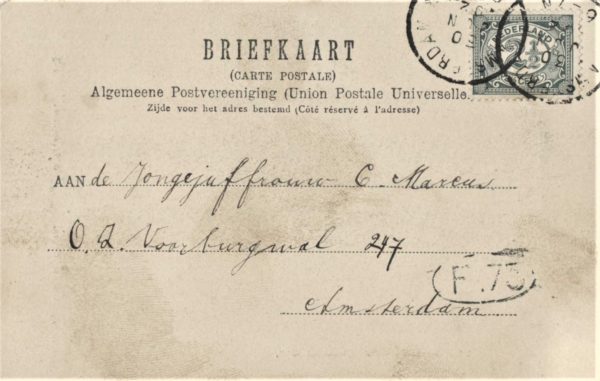 BRIEFKAART
(CARTE POSTALE)
Algemeene Postvereeniging (Union Postale Universelle)
Zijde voor het adres bestemd (Côté réservé à l'adresse)
NEDERLAND
AAN de Jongejuffrouw C. Marcus
O. Z. Voorburgwal 247
F. 73
Amsterdam